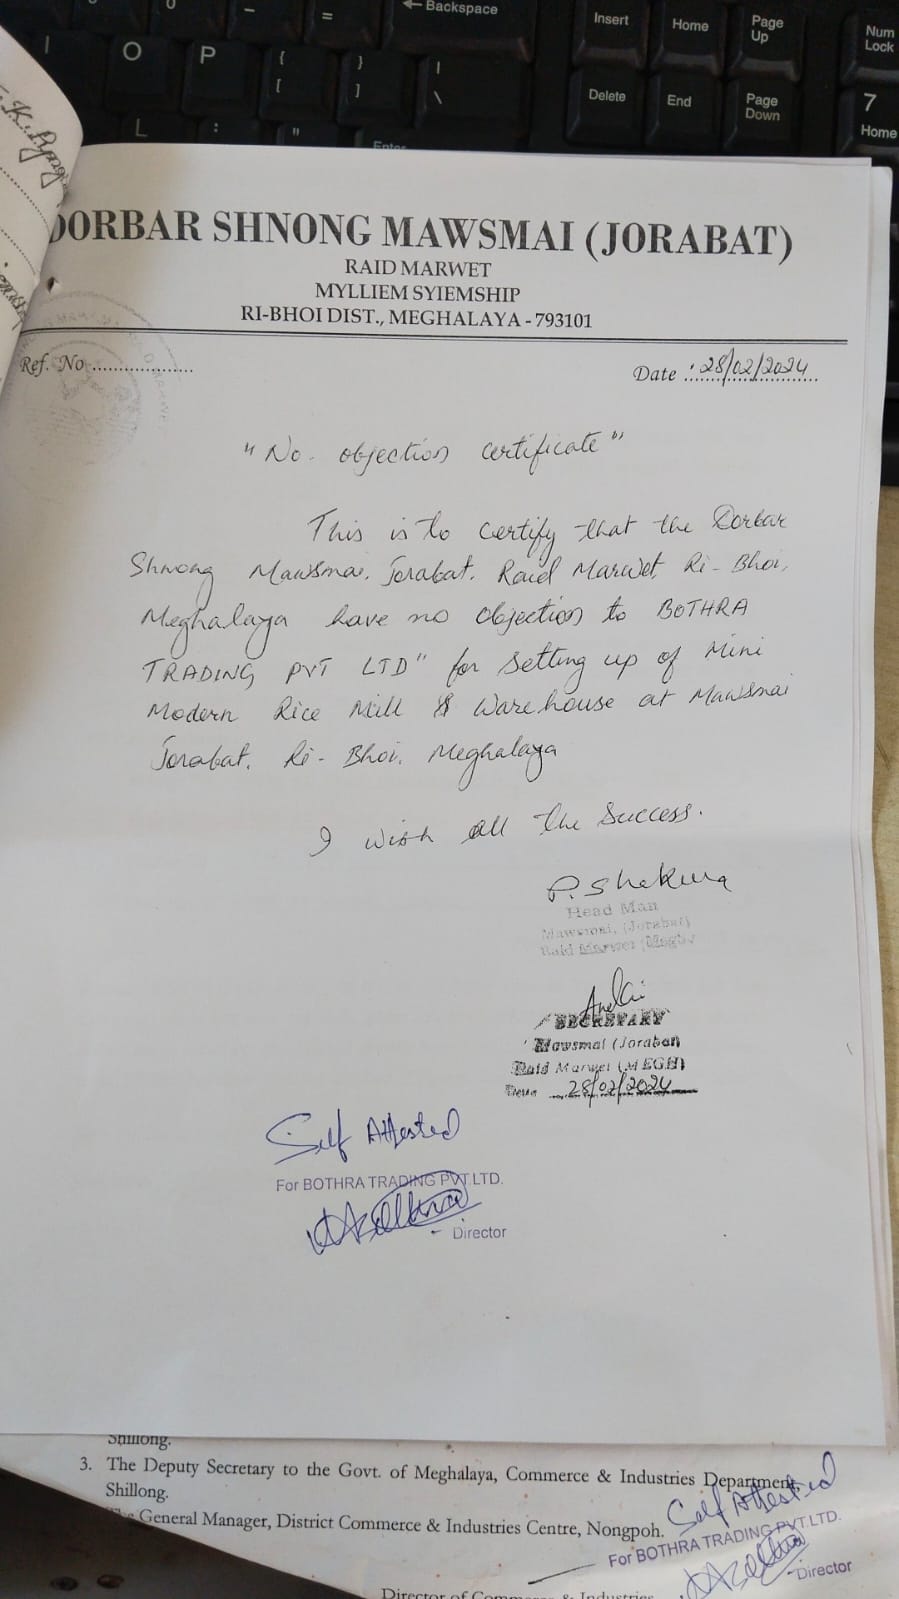 Backspace
Insert
Home
Page Up
Num Lock
O
P
Delete
End
Page Down
7
Home
L
Enter
DORBAR SHNONG MAWSMAI (JORABAT)
RAID MARWET
MYLLIEM SYIEMSHIP
RI-BHOI DIST., MEGHALAYA - 793101
Ref. No ..................
Date : 28/02/2024
"No. objection certificate"
This is to certify that the Dorbar
Shnong Mawsmai, Jorabat. Raid Marwet, Ri-Bhoi,
Meghalaya have no objection to BOTHRA
TRADING PVT LTD" for setting up of Mini
Modern Rice Mill & Warehouse at Mawsmai
Jorabat. Ri-Bhoi. Meghalaya
I wish all the success.
Head Man
Mawsmai, (Jorabat)
Raid Marwet
SECRETARY
Mawsmai (Jorabat)
Raid Marwet (MEGH)
Date 28/02/2024
Self Attested
For BOTHRA TRADING PVT.LTD.
Director
Shillong.
3. The Deputy Secretary to the Govt. of Meghalaya, Commerce & Industries Department,
Shillong.
General Manager, District Commerce & Industries Centre, Nongpoh.
Self Attested
For BOTHRA TRADING PVT.LTD.
Director
Director of Commerce & Industries